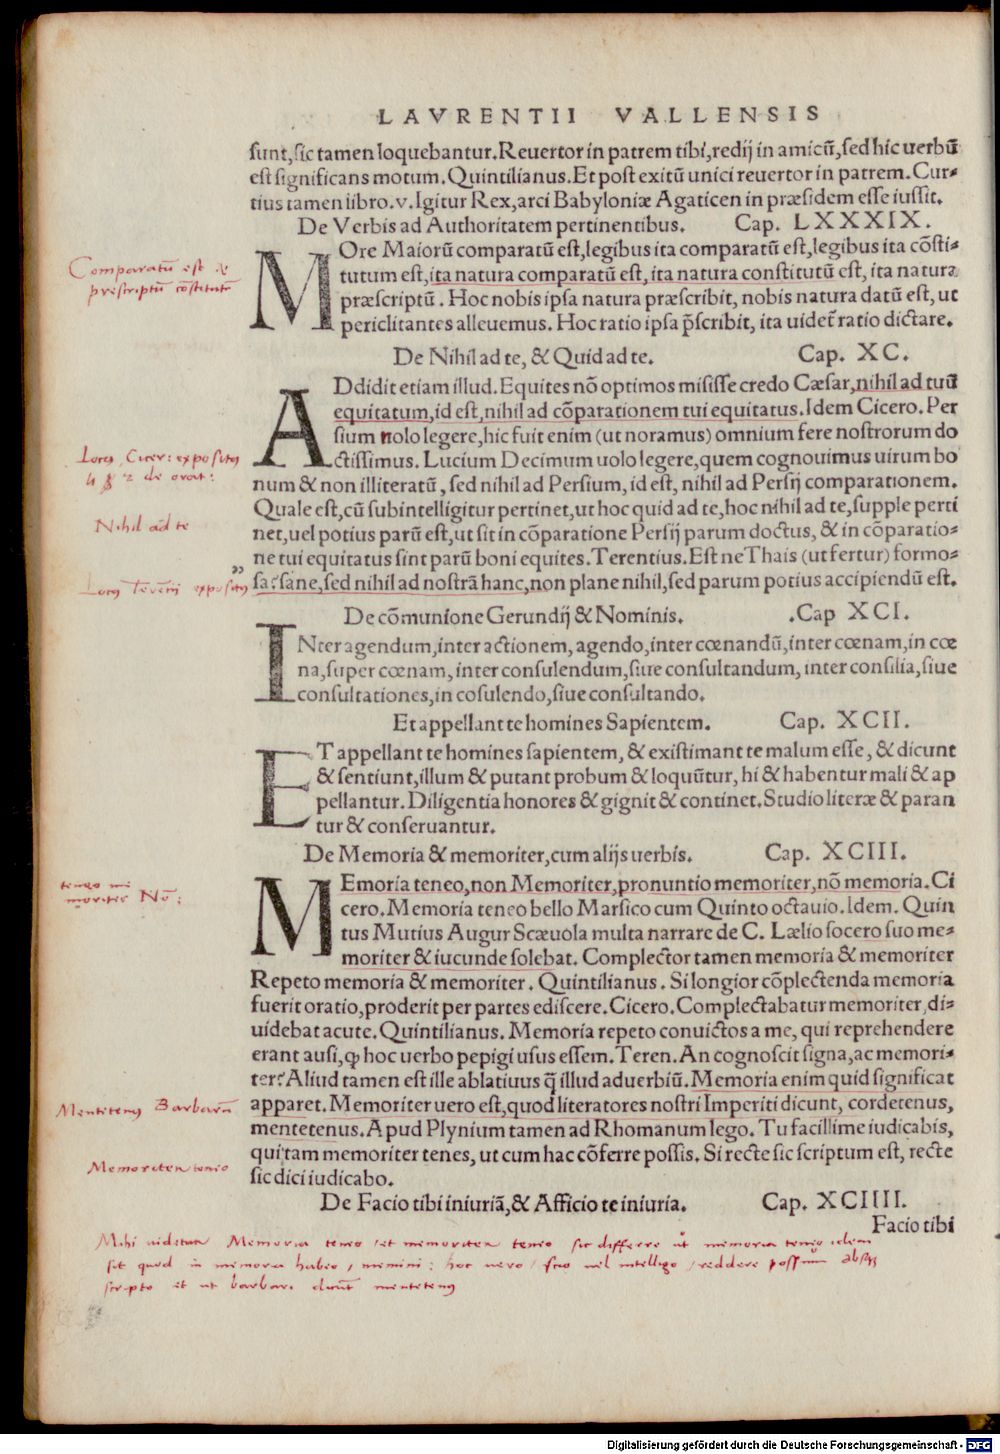 LAVRENTII VALLENSIS
sunt,sic tamen loquebantur.Reuertor in patrem tibi,redij in amicũ,sed hic uerbũ
est significans motum.Quintilianus.Et post exitũ unici reuertor in patrem.Cur-
tius tamen libro.v.Igitur Rex,arci Babyloniæ Agaticen in præsidem esse iussit.
De Verbis ad Authoritatem pertinentibus. Cap. LXXXIX.
Comparatũ est &
prescriptũ cõstitutũ
MOre Maiorũ comparatũ est,legibus ita comparatũ est,legibus ita cõsti-
tutum est,ita natura comparatũ est, ita natura constitutũ est, ita natura
præscriptũ. Hoc nobis ipsa natura præscribit, nobis natura datũ est, ut
periclitantes alleuemus. Hoc ratio ipsa p̃scribit, ita uidet̃ ratio dictare.
De Nihil ad te, & Quid ad te. Cap. XC.
ADdidit etiam illud. Equites nõ optimos misisse credo Cæsar,nihil ad tuũ
equitatum,id est,nihil ad cõparationem tui equitatus.Idem Cicero.Per
sium nolo legere,hic fuit enim (ut noramus) omnium fere nostrorum do
Locus Cicer: expositus
2 de orat:
ctissimus. Lucium Decimum uolo legere,quem cognouimus uirum bo
num & non illiteratũ, sed nihil ad Persium, id est, nihil ad Persij comparationem.
Quale est,cũ subintelligitur pertinet,ut hoc quid ad te,hoc nihil ad te,supple perti
Nihil ad te
net,uel potius parũ est,ut sit in cõparatione Persij parum doctus, & in cõparatio-
ne tui equitatus sint parũ boni equites.Terentius.Est ne Thais (ut fertur) formo-
Locus Terentij expositus
„ sa?sane,sed nihil ad nostrã hanc,non plane nihil,sed parum potius accipiendũ est.
De cõmunione Gerundij & Nominis. .Cap XCI.
INter agendum,inter actionem, agendo,inter cœnandũ,inter cœnam,in cœ
na,super cœnam, inter consulendum,siue consultandum, inter consilia,siue
consultationes,in cosulendo,siue consultando.
Et appellant te homines Sapientem. Cap. XCII.
ET appellant te homines sapientem, & existimant te malum esse, & dicunt
& sentiunt,illum & putant probum & loquũtur, hi & habentur mali & ap
pellantur.Diligentia honores & gignit & continet.Studio literæ & paran
tur & conseruantur.
De Memoria & memoriter,cum alijs uerbis. Cap. XCIII.
teneo me
moriter Nõ:
MEmoria teneo,non Memoriter,pronuntio memoriter,nõ memoria. Ci
cero.Memoria teneo bello Marsico cum Quinto octauio.Idem. Quin
tus Mutius Augur Scæuola multa narrare de C. Lælio socero suo me-
moriter & iucunde solebat. Complector tamen memoria & memoriter
Repeto memoria & memoriter. Quintilianus. Si longior cõplectenda memoria
fuerit oratio,proderit per partes ediscere.Cicero.Complectabatur memoriter,di-
uidebat acute.Quintilianus. Memoria repeto conuictos a me, qui reprehendere
erant ausi,ꝙ hoc uerbo pepigi usus essem.Teren.An cognoscit signa,ac memori-
ter?Aliud tamen est ille ablatiuus q̃ illud aduerbiũ.Memoria enim quid significat
Mentetenus Barbarũ
apparet.Memoriter uero est,quod literatores nostri Imperiti dicunt, cordetenus,
mentetenus.Apud Plynium tamen ad Rhomanum lego. Tu facillime iudicabis,
Memoriter teneo
qui tam memoriter tenes, ut cum hac cõferre possis. Si recte sic scriptum est, recte
sic dici iudicabo.
De Facio tibi iniuriã,& Afficio te iniuria. Cap. XCIIII.
Facio tibi
Mihi videtur Memoria teneo et memoriter teneo sic differre ut memoria teneo idem
sit quod in memoria habeo, memini: hoc vero, suo vel intelligo, reddere possum absq;
scripto et ut barbari dicunt mentetenus